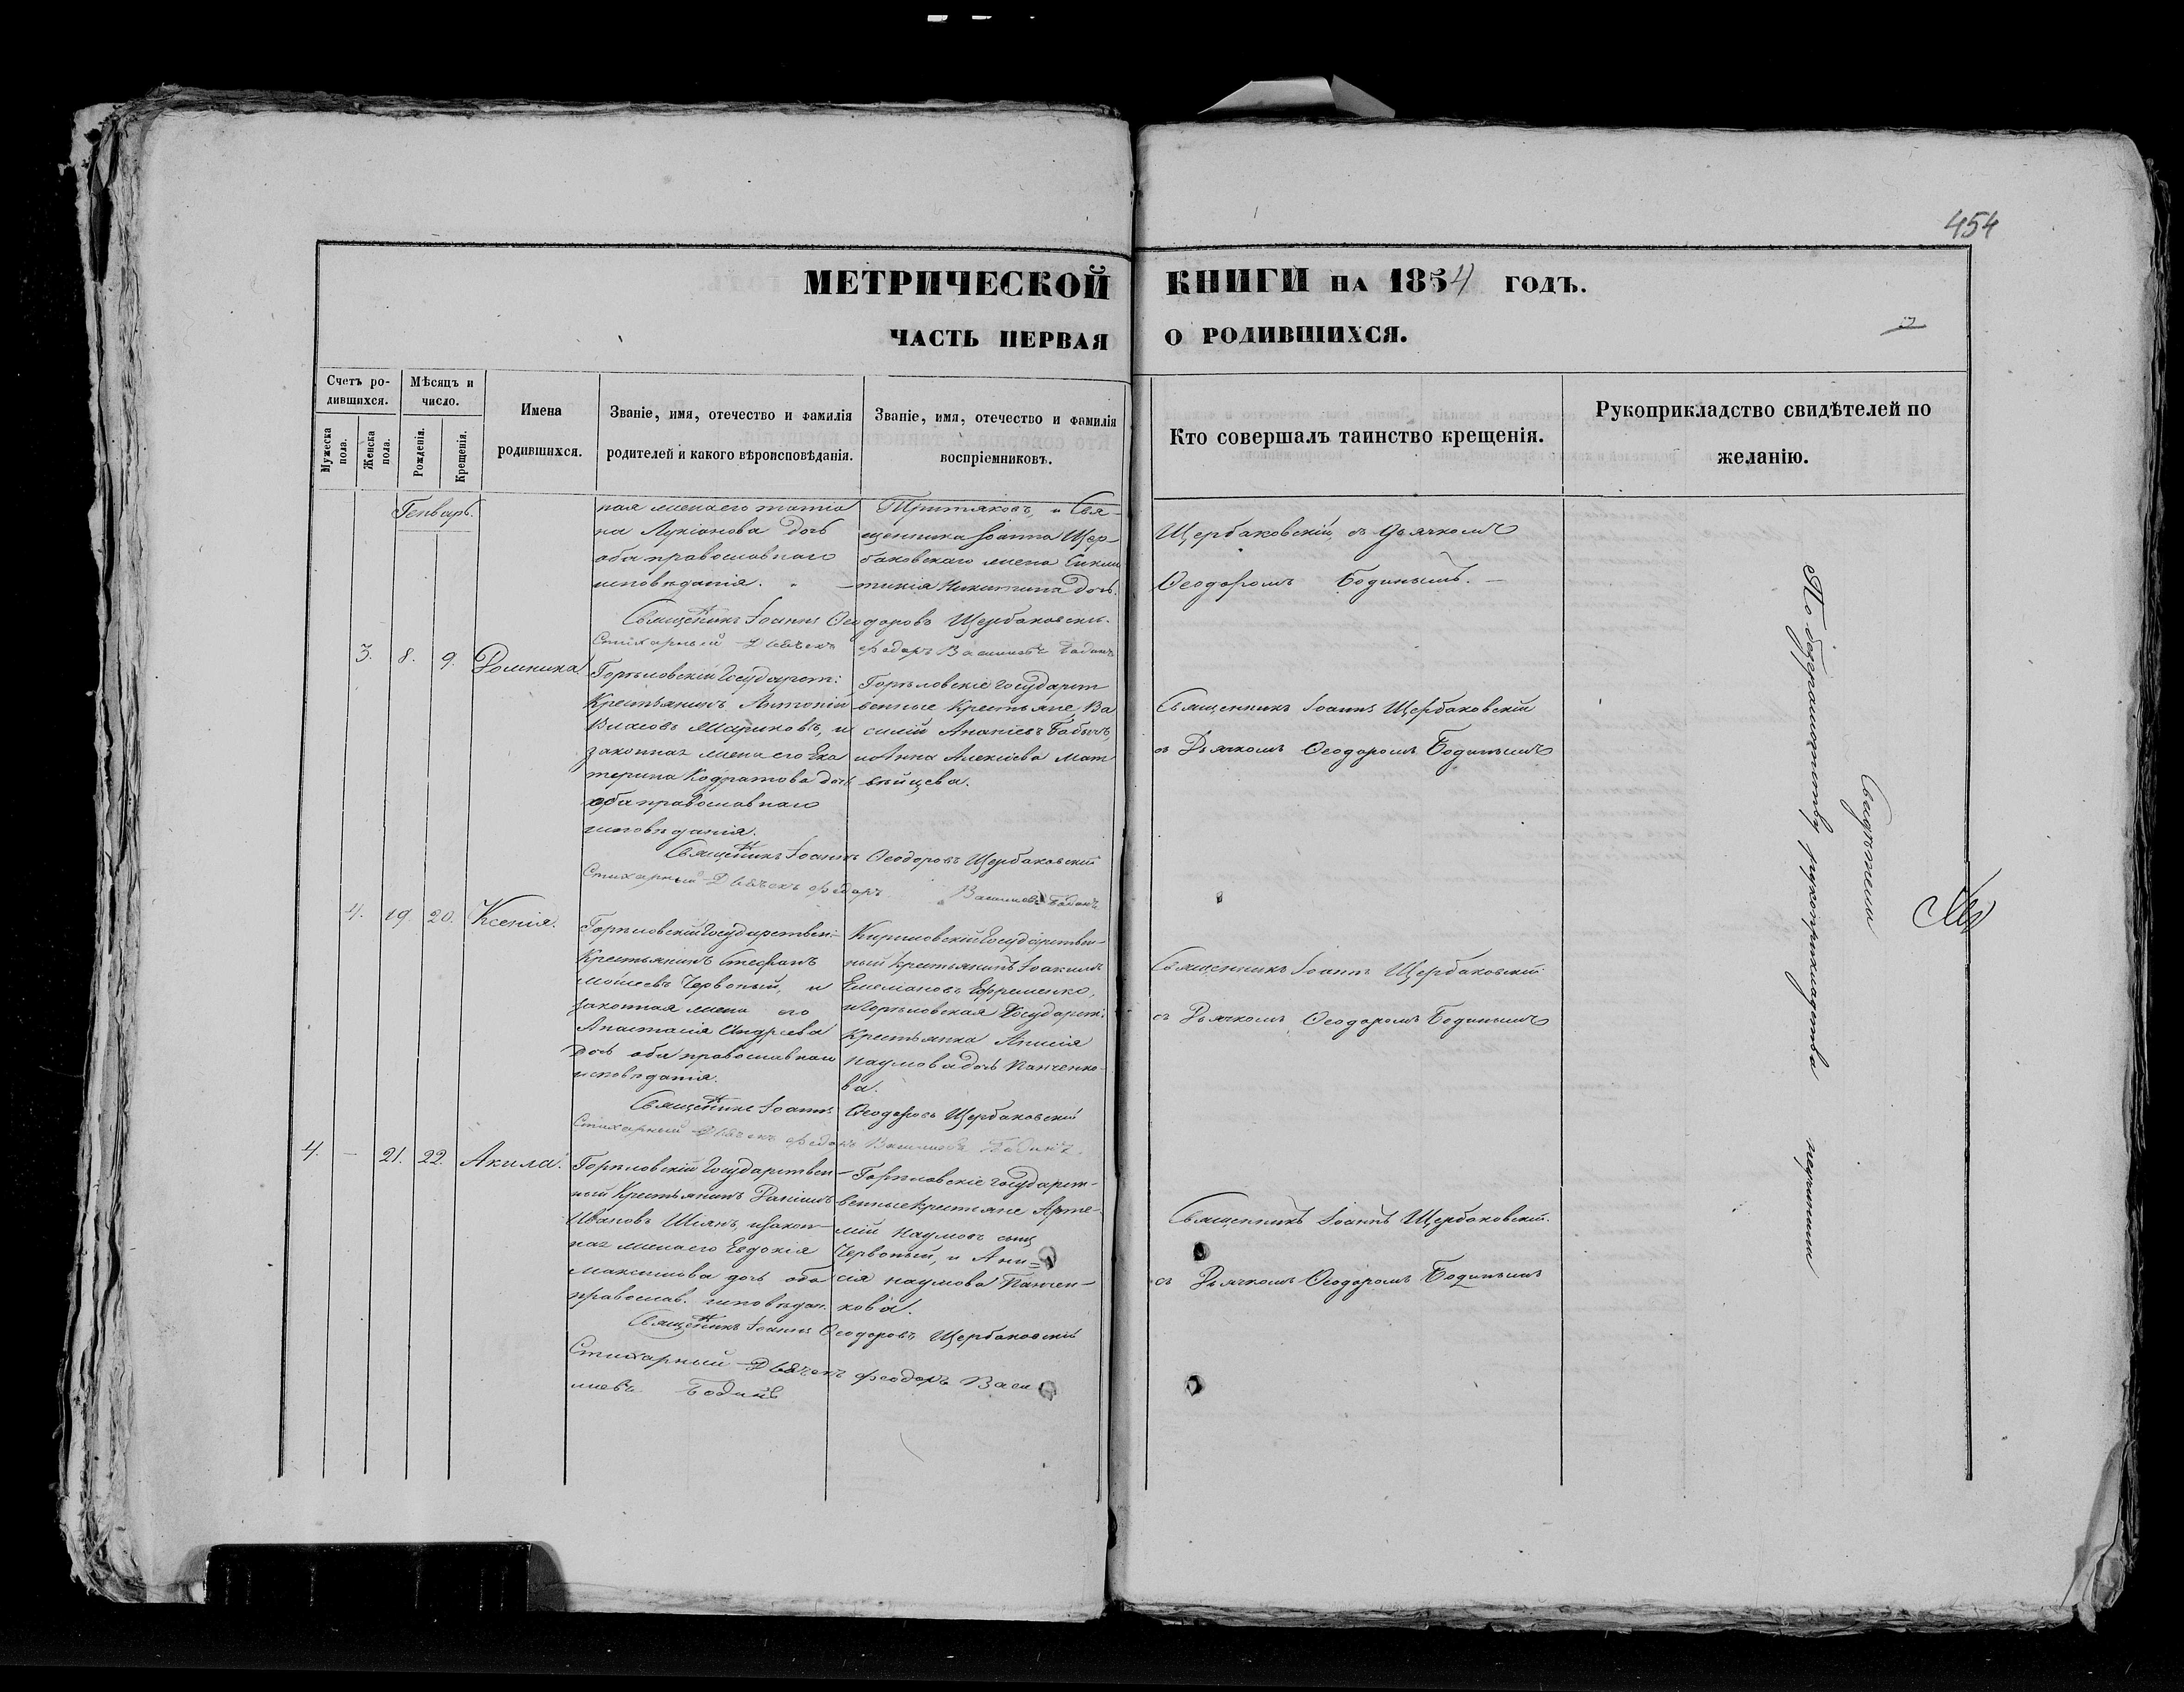 454
МЕТРИЧЕСКОЙ КНИГИ НА 1854 ГОДЪ.
ЧАСТЬ ПЕРВАЯ О РОДИВШИХСЯ.
Счетъ ро-
дившихся.
Мужеска
пола.
Женска
пола.
Мѣсяцъ и
число.
Рожденія.
Крещенія.
Имена
родившихся.
Званіе, имя, отечество и фамилія
родителей и какого вѣроисповѣданія.
Званіе, имя, отечество и фамилія
воспріемниковъ.
Кто совершалъ таинство крещенія.
Рукоприкладство свидѣтелей по
желанію.
Генварь.
ная жена его Татіа
на Лукіанова дочь
оба православнаго
исповѣданія.
Притяковъ, и Свя-
щенника Іоанна Щер-
баковскаго жена
Никитина дочь.
Щербаковскій, съ Дьячкомъ
Ѳеодоромъ Бодинымъ.
Священникъ Іоаннъ Ѳеодоровъ Щербаковскій
Стихарный Дьячекъ Федоръ Васильевъ Бодинъ
3. 8. 9. Домникія
Горѣловскій Государст:
Крестьянинъ Антоній
Власовъ Мариковъ, и
законная жена его Ека
терина Кодратова дочь
оба православнаго
исповѣданія.
Горѣловскіе Государст
венные Крестьяне, Ва
силій Ананіевъ Бабычъ,
и Анна Алексіева Мат
вѣйцева.
Священникъ Іоаннъ Щербаковскій
съ Дьячкомъ Ѳеодоромъ Бодинымъ
Священникъ Іоаннъ Ѳеодоровъ Щербаковскій
Стихарный Дьячекъ Федоръ Васильевъ Бодинъ
4. 19. 20. Ксенія.
Горѣловскій Государствен:
Крестьянинъ Стефанъ
Моѵсеевъ Червоный, и
законная жена его
Анастасія Андреева
дочь оба православнаго
исповѣданія.
Кириловскій Государствен-
ный Крестьянинъ Іоакимъ
Емеліановъ Ефременко,
и Горѣловская Государст:
Крестьянка Анисія
Наумова дочь Панченко-
ва.
Священникъ Іоаннъ Щербаковскій
съ Дьячкомъ Ѳеодоромъ Бодинымъ
Священникъ Іоаннъ Ѳеодоровъ Щербаковскій
Стихарный Дьячекъ Федоръ Васильевъ Бодинъ.
4. – 21. 22. Акила.
Горѣловскій Государствен-
ный Крестьянинъ Даніилъ
Ивановъ Шіянъ, и закон-
ная жена его Евдокія
Максимова дочь оба
православ. исповѣдан.
Горѣловскіе Государст-
венные крестьяне Арте-
мій Наумовъ сынъ
Червоный, и Ани=
сія Наумова Панчен-
кова.
Священникъ Іоаннъ Щербаковскій.
съ Дьячкомъ Ѳеодоромъ Бодинымъ
Священникъ Іоаннъ Ѳеодоровъ Щербаковскій
Стихарный Дьячекъ Феодоръ Васи
льевъ Бодинъ
По безграмотству рукоприкладства
Свидѣтели